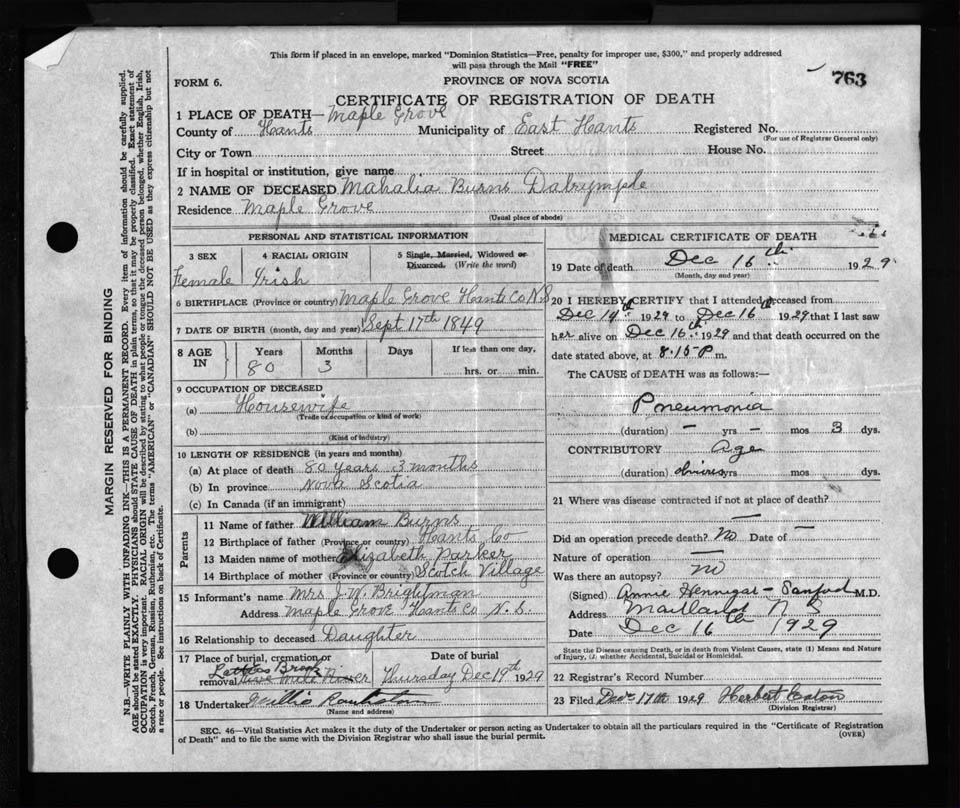 This form if placed in an envelope, marked "Dominion Statistics—Free, penalty for improper use, $300," and properly addressed
will pass through the Mail "FREE"
763
FORM 6.
PROVINCE OF NOVA SCOTIA
CERTIFICATE OF REGISTRATION OF DEATH
1 PLACE OF DEATH— Maple Grove
County of Hants Municipality of East Hants Registered No.
(For use of Registrar General only)
City or Town Street House No.
If in hospital or institution, give name
2 NAME OF DECEASED Mahalia Burns Dalrymple
Residence Maple Grove
(Usual place of abode)
PERSONAL AND STATISTICAL INFORMATION
3 SEX 4 RACIAL ORIGIN 5 Single, Married, Widowed or
Divorced. (Write the word)
Female Irish
6 BIRTHPLACE (Province or country) Maple Grove Hants Co N.S
7 DATE OF BIRTH (month, day and year) Sept 17th 1849
8 AGE IN Years Months Days If less than one day,
80 3 hrs. or min.
9 OCCUPATION OF DECEASED
(a) Housewife
(Trade or occupation or kind of work)
(b)
(Kind of industry)
10 LENGTH OF RESIDENCE (in years and months)
(a) At place of death 80 years 3 months
(b) In province Nova Scotia
(c) In Canada (if an immigrant)
Parents
11 Name of father William Burns
12 Birthplace of father (Province or country) Hants Co
13 Maiden name of mother Elizabeth Parker
14 Birthplace of mother (Province or country) Scotch Village
15 Informant's name Mrs J. W. Brightman
Address Maple Grove Hants Co N.S.
16 Relationship to deceased Daughter
17 Place of burial, cremation or Date of burial
removal Brook Five Mile River Thursday Dec 19th 1929
18 Undertaker Willis
(Name and address)
MEDICAL CERTIFICATE OF DEATH
19 Date of death Dec 16th 1929
(Month, day and year)
20 I HEREBY CERTIFY that I attended deceased from
Dec 14th 1929 to Dec 16th 1929 that I last saw
her alive on Dec 16th 1929 and that death occurred on the
date stated above, at 8.15 P m.
The CAUSE of DEATH was as follows:—
Pneumonia
(duration) — yrs — mos 3 dys.
CONTRIBUTORY Age
(duration) yrs mos dys.
21 Where was disease contracted if not at place of death?
—
Did an operation precede death? No Date of —
Nature of operation —
Was there an autopsy? No
(Signed) Annie Hennigar-Sanford M.D.
Address Maitland N S
Date Dec 16th 1929
State the Disease causing Death, or in death from Violent Causes, state (1) Means and Nature
of Injury, (2) whether Accidental, Suicidal or Homicidal.
22 Registrar's Record Number
23 Filed Dec 17th 1929 Herbert Eaton
(Division Registrar)
SEC. 46—Vital Statistics Act makes it the duty of the Undertaker or person acting as Undertaker to obtain all the particulars required in the "Certificate of Registration
of Death" and to file the same with the Division Registrar who shall issue the burial permit.
(OVER)
MARGIN RESERVED FOR BINDING
N.B.—WRITE PLAINLY WITH UNFADING INK—THIS IS A PERMANENT RECORD. Every item of information should be carefully supplied.
AGE should be stated EXACTLY. PHYSICIANS should STATE CAUSE OF DEATH in plain terms, so that it may be properly classified. Exact statement of
OCCUPATION is very important. RACIAL ORIGIN will be described by stating to what people or tongue the deceased person belonged, whether English, Irish,
Scotch, French, German, Russian, Ruthenian, etc. The terms "AMERICAN" or "CANADIAN" SHOULD NOT BE USED as they express citizenship but not
a race or people. See instructions on back of Certificate.